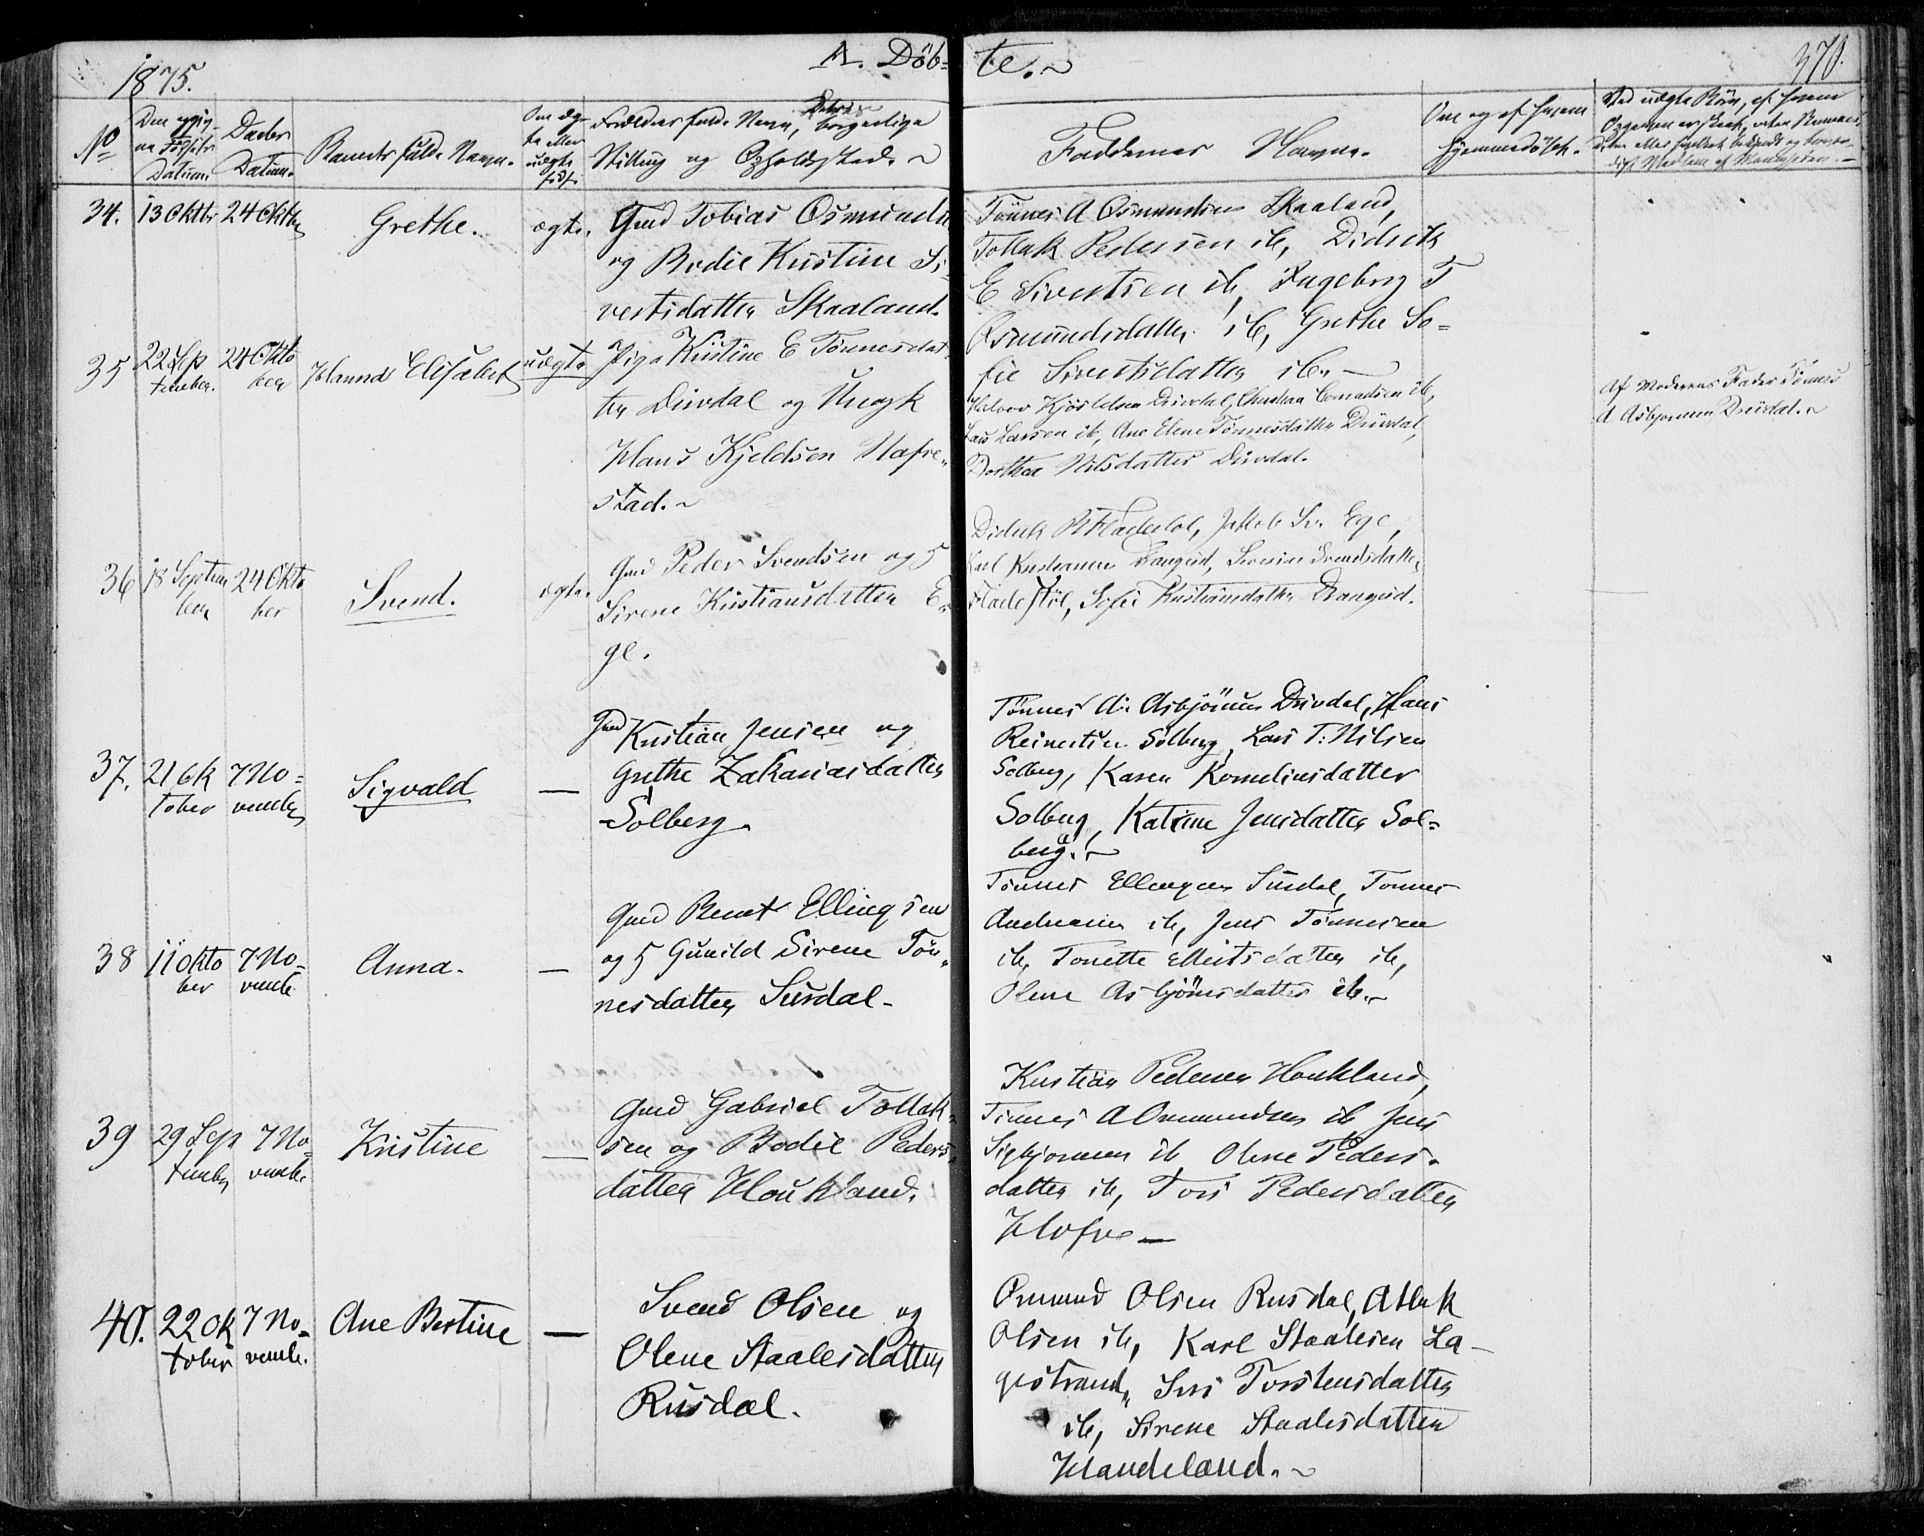 1875.
A. Döb=
te.~
370.
No
Den opgiv-
ne Födsels
Datum.
Daabs
Datum.
Barnets fulde Navn.
Om æg-
te eller
uægte
født.
Forældres fulde Navn, borgerlige
Stilling og Opholdssted.~
Faddernes Navne.
Om og af hvem
hjemmedöbt.
Ved uægte Börn, af hvem
34.
13 Oktbr
24 Oktbr
Grethe.
ægte.
Gmd Tobias Osmunds
og Bodil Kristine Si-
vertsdatter Skaaland.
Tönnes A Osmundsen Skaaland,
Tollak Pedersen ib, Didrik
E Sivertsen ib, Ingeborg T
Osmundsdatter ib, Grethe So=
fie Sivertsdatter ib.~
35
22 Sep
tember.
24 Okto
ber
Hanna Elisabet
uægte
Piga Kristine E Tönnesdat
ter Düvdal og Ungk
Hans Kjeldsen Nafre„
stad.~
Halvor Kjöstelsen Düvdal, Christian Conradsen ib,
Lars Larsen ib, Ane Elene Tönnesdatter Düvdal,
Dorthea Nilsdatter Düvdal.
Af Moderens Fader Tönnes
A Asbjornsen Düvdal.~
36
18 Septem
ber
24 Okto
ber
Svend.
ægte.
Gmd Peder Svendsen og H
Sirene Kristiansdatter E„
ge.
Didrik P Fladestöl, Jakob Sv. Ege,
Karl Kristiansen Dangsvd, Severine Svendsdatter
Fladestöl, Sofie Kristiansdatter Drangsvd.
37.
21 Ok
tober
7 No=
vember
Sigvald
—
Gmd Kristian Jensen og
Grethe Zakariasdatter
Solberg
Tönnes A. Asbjörnsen Düvdal, Hans
Reinertsen Solberg, Lars T. Nilsen
Solberg, Karen Kornelinsdatter
Solberg, Katrine Jensdatter Sol=
berg.~
38
11 Okto
ber
7 No=
vembr
Anna.
—
Gmd Berent Ellingsen
og H Gunild Sirene Tön„
nesdatter Susdal.
Tönnes Ellingsen Susdal, Tönnes
Andreasen ib, Jens Tönnesen
ib, Tonette Ellertsdatter ib,
Olene Asbjörnsdatter ib.~
39
29 Sep
tember
7 No=
vembr.
Kristine
—
Gmd Gabriel Tollak
sen og Bodil Peders
datter Houkland.
Kristian Pedersen Houkland,
Tönnes A Osmundsen ib Jens
Sigbjornsen ib Olene Peders-
datter ib, Tori Pedersdatter
Hofve—
40.
22 Ok
tober
7 No=
vembr.
Ane Bertine
—
Svend Olsen og
Olene Staalesdatter
Rusdal.
Osmund Olsen Rusdal, Atlak
Olsen ib, Karl Staalesen La-
gestrand, Siri Torstensdatter
ib, Sirene Staalesdatter
Handeland.~